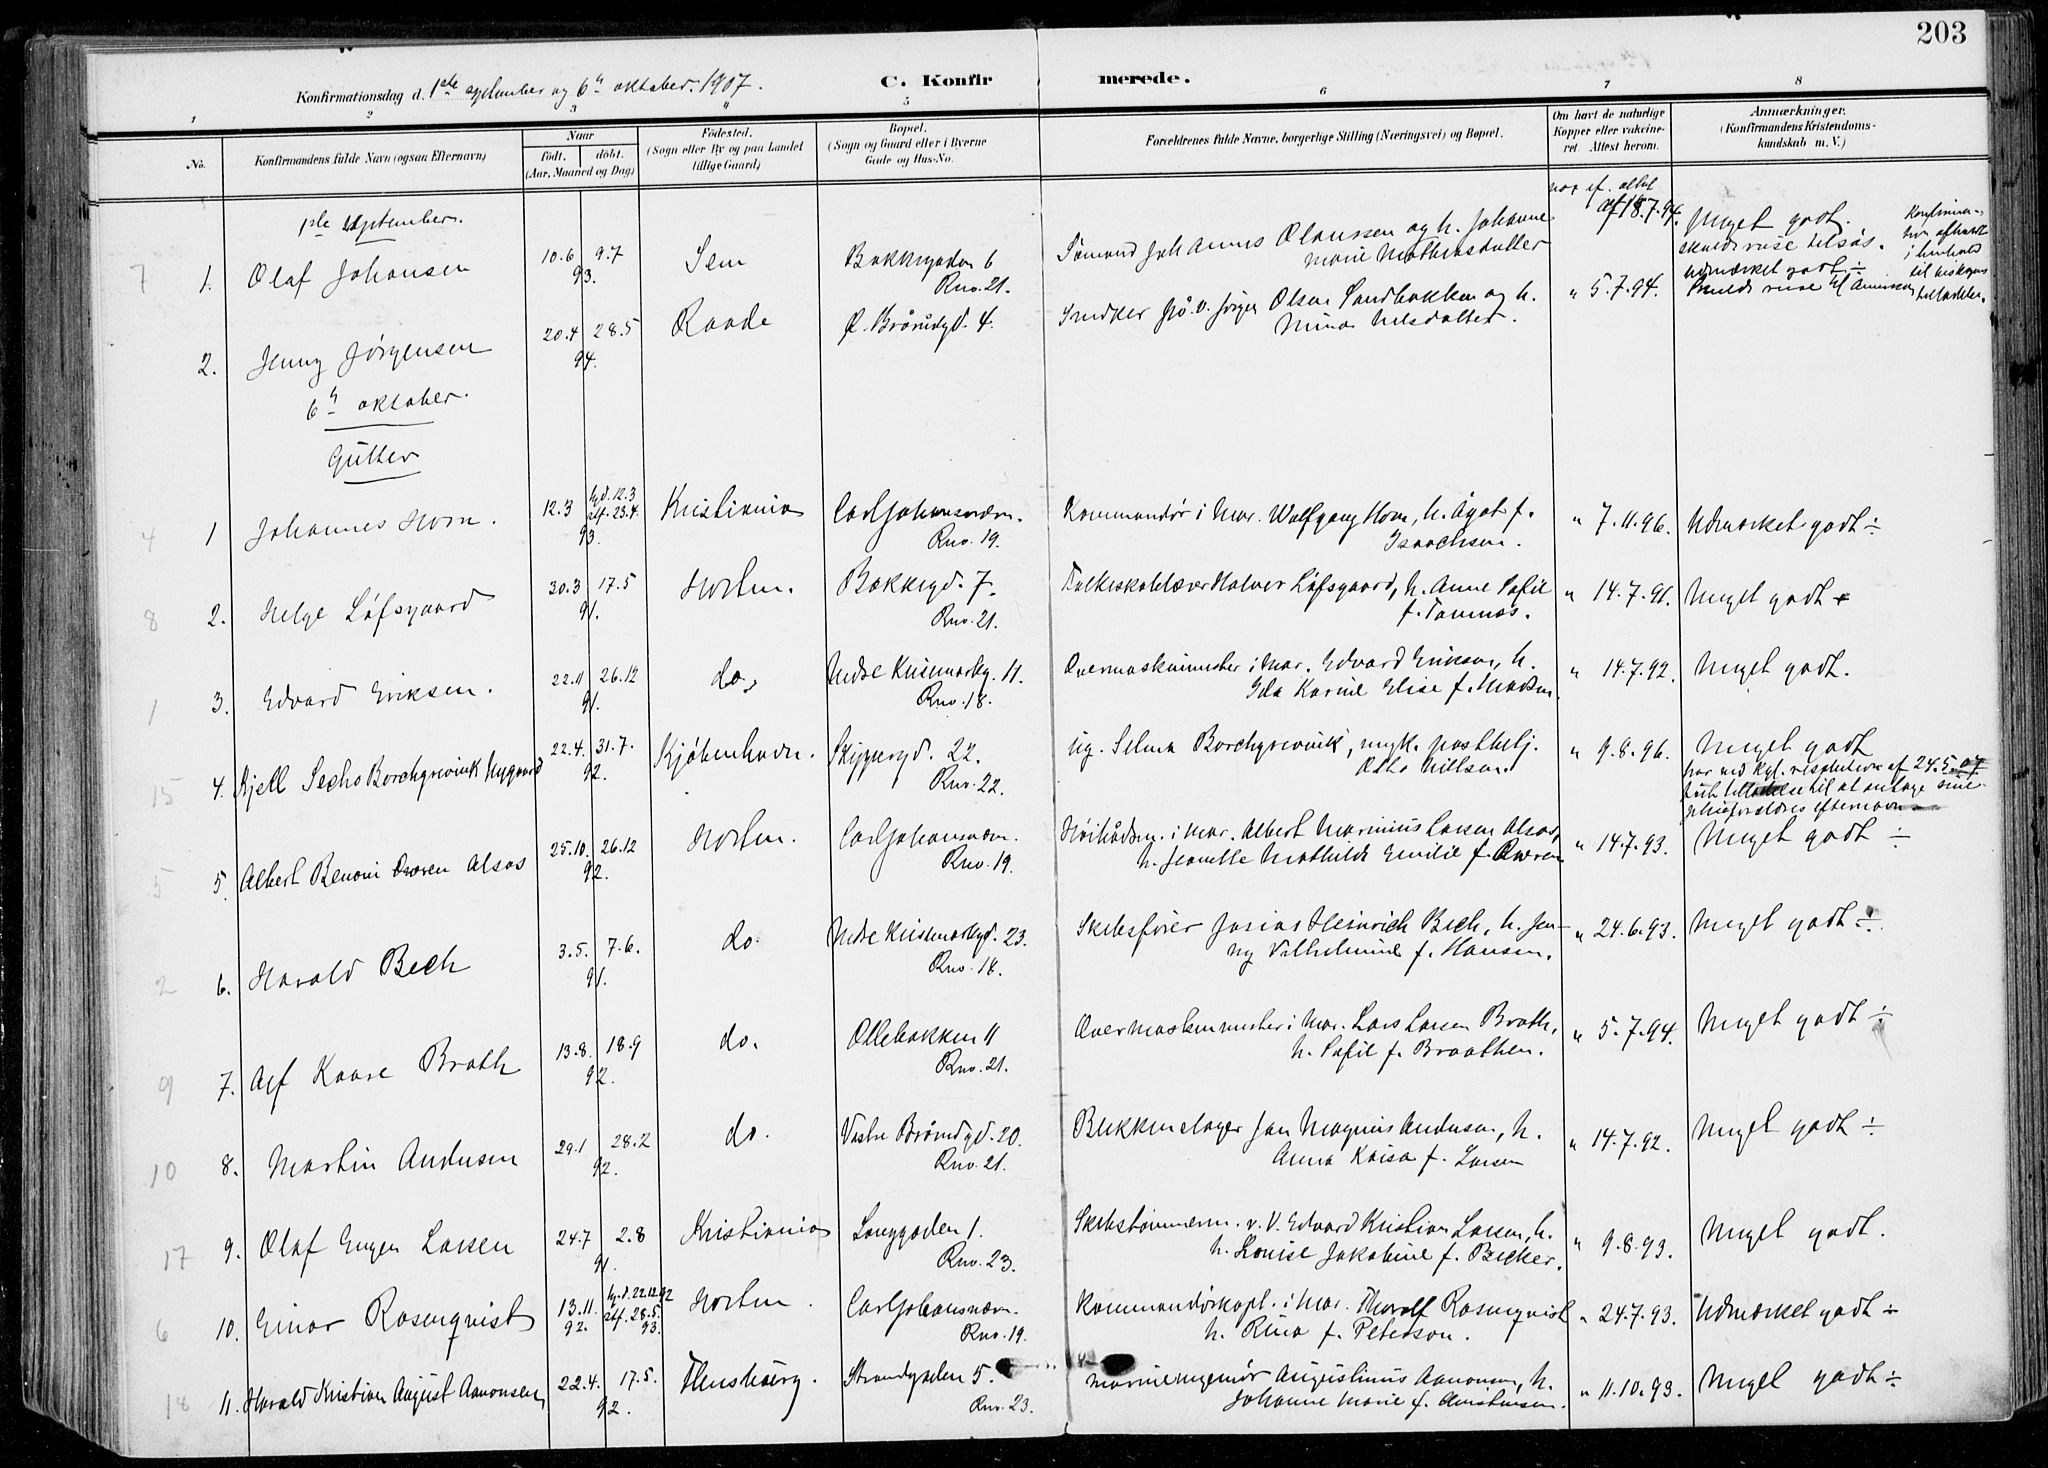 203
Konfirmationsdag d. 1ste september og 6te oktober 1907.
C. Konfirmerede.
1 2 3 " 5 6 7 8
No.
Konfirmandens fulde Navn (ogsaa Efternavn)
Naar
født. døbt.
(Aar, Maaned og Dag)
Fødested.
(Sogn eller By og paa Landet
tillige Gaard)
Bopæl.
(Sogn og Gaard eller i Byerne
Gade og Hus-No.
Forældrenes fulde Navne, borgerlige Stilling (Næringsvei) og Bopæl.
Om havt de naturlige
Kopper eller vakcineret.
Attest herom.
Anmærkninger.
(Konfirmandens Kristendomskundskab
m. V.)
1ste september.
7 1. Olaf Johansen 10.6 9.7 93. Sem Bakkegaden 6 Rno. 21.
Sømand Johannes Olaussen og h. Johanne
Marie Mathiasdatter
af 18.7.94. Meget godt.
skulde reise tilsøs.
i henhold
til biskopens
tilladelse.
2. Jenny Jørgensen 20.4 28.5 94. Raade Ø. Brårudgd. 4.
Snedker Jørgen Olsen Sandbakken og h.
Mina Nilsdatter.
" 5.7.94. Udmærket godt ÷
skulde reise til Amerika
6te oktober.
Gutter
4 1 Johannes Horn. 12.3 hjd. 12.3 stf. 23.4. 93. Kristiania Carljohansværn. Rno. 19.
Kommandør i Mar. Wolfgang Horn, h. Ågot f.
Isaachsen.
" 7.11.96. Udmærket godt ÷
8 2. Helge Løfsgaard 30.3 17.5 91. Horten. Bakkegd. 7. Rno. 21.
Folkeskolelærer Halvor Løfsgaard, h. Anne Sofie
f. Tomnæs.
" 14.7.91. Meget godt ÷
1 3. Edvard Eriksen. 22.11 26.12 91. do. Nedre Keisemarkg. 11. Rno. 18.
Overmaskinmester i Mar. Edvard Eriksen, h.
Ida Karine Elise f. Madsen.
" 14.7.92. Meget godt.
15 4. Kjell Sechs Borchgrevink Nygaard 22.4. 31.7. 92. Kjøbenhavn. Skippergd. 22. Rno. 22.
ug. Selma Borchgrevink, postbetj.
Otto Nilsen.
" 9.8.96. Meget godt
har ved kgl. resolution af 24.5.07
faaet tilladelse til at antage sine
pleieforældres efternavn
5 5. Albert Benoni Alsos 25.10. 26.12 92. Horten. Carljohansværn. Rno. 19.
Høibådsm. i Mar. Albert Marinius Larsen Alsos,
h. Jeanette Mathilde Emilie f.
" 14.7.93. Meget godt ÷
2 6. Harald Bech 3.5. 7.6. 91. do. Nedre Keisemarkgd. 23. Rno. 18.
Skibsfører Josias Heinrich Bech, h. Jenny
Vilhelmine f. Hansen.
" 24.6.93. Meget godt ÷
9 7. Alf Kaare Brath 13.8. 18.9 92. do. Ollebakken 11 Rno. 21.
Overmaskinmester i Mar. Lars Larsen Brath,
h. Sofie f. Braathen.
" 5.7.94. Meget godt ÷
10 8. Martin Andersen 29.1 28.2 92. do. Vestre Brårudgd. 20. Rno. 21.
Blikkenslager Jan Magnus Andersen, h.
Anna Kaisa f. Larsen
" 14.7.92. Meget godt ÷
17 9. Olaf Eugen Larsen 24.7 2.8 91. Kristiania Langgaden 1. Rno. 23.
Skibstømmerm. v. V. Edvard Kristian Larsen, h.
h. Louise Jakobine f. Becker.
" 9.8.93. Meget godt.
6 10. Einar Rosenqvist 13.11. 92. hjd. 22.12.92 stf. 28.5. 93. Horten. Carljohansværn. Rno. 19.
Kommandørkapt. i Mar. Thoralf Rosenqvist
h. Rina f. Peterson.
" 24.7.93. Udmærket godt ÷
18 11. Harald Kristian August Aanonsen 22.4. 17.5. 92. Flensburg. Strandgaden 5. Rno. 23.
Marineingeniør Augustinus Aanonsen, h.
Johanne Marie f. Christensen.
" 11.10.93. Meget godt ÷